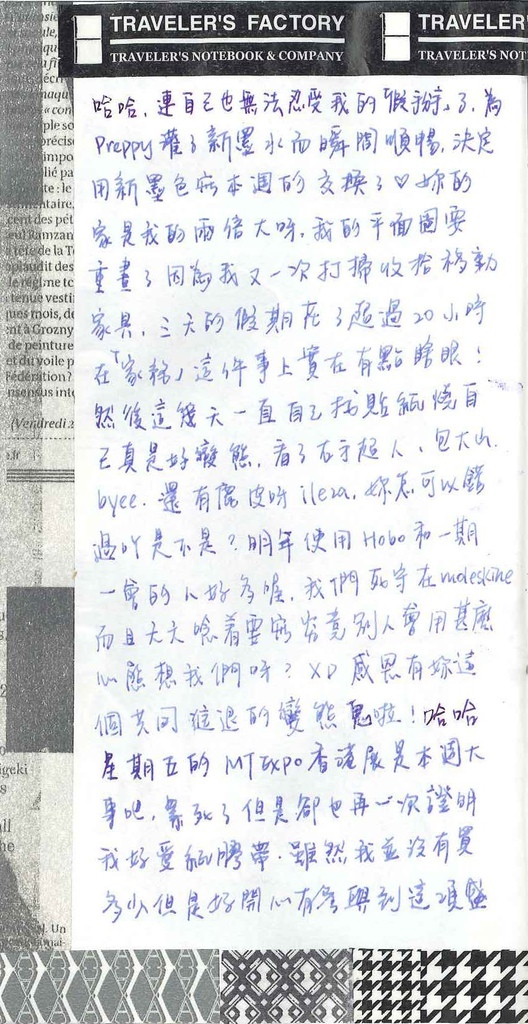 TRAVELER'S FACTORY
TRAVELER'S NOTEBOOK & COMPANY
TRAVELER'
TRAVELER'S NOT
哈哈，連自己也無法忍受我的「假掰」了，為
Preppy灌了新墨水而瞬間順暢，決定
用新墨色寫本週的交換了♡妳的
家是我的兩倍大呀，我的平面圖要
重畫了因為我又一次打掃收拾移動
家具，三天的假期花了超過20小時
在「家務」這件事上實在有點瞎眼！
然後這幾天一直自己找貼紙燒自
己真是好變態，看了右手超人、包大山、
byee. 還有鹿皮呀ileza，妳怎可以錯
過吖是不是？明年使用Hobo和一期
一會的人好多喔，我們死守在moleskine
而且天天唸著要寫究竟別人會用甚麼
心態想我們呀？XD 感恩有妳這
個共同進退的變態鬼啦！哈哈
星期五的MT Expo香港展是本週大
事吧，累死了但是卻也再一次證明
我好愛紙膠帶．雖然我並沒有買
多少但是好開心有參與到這項盛
(Vendredi 2
igeki